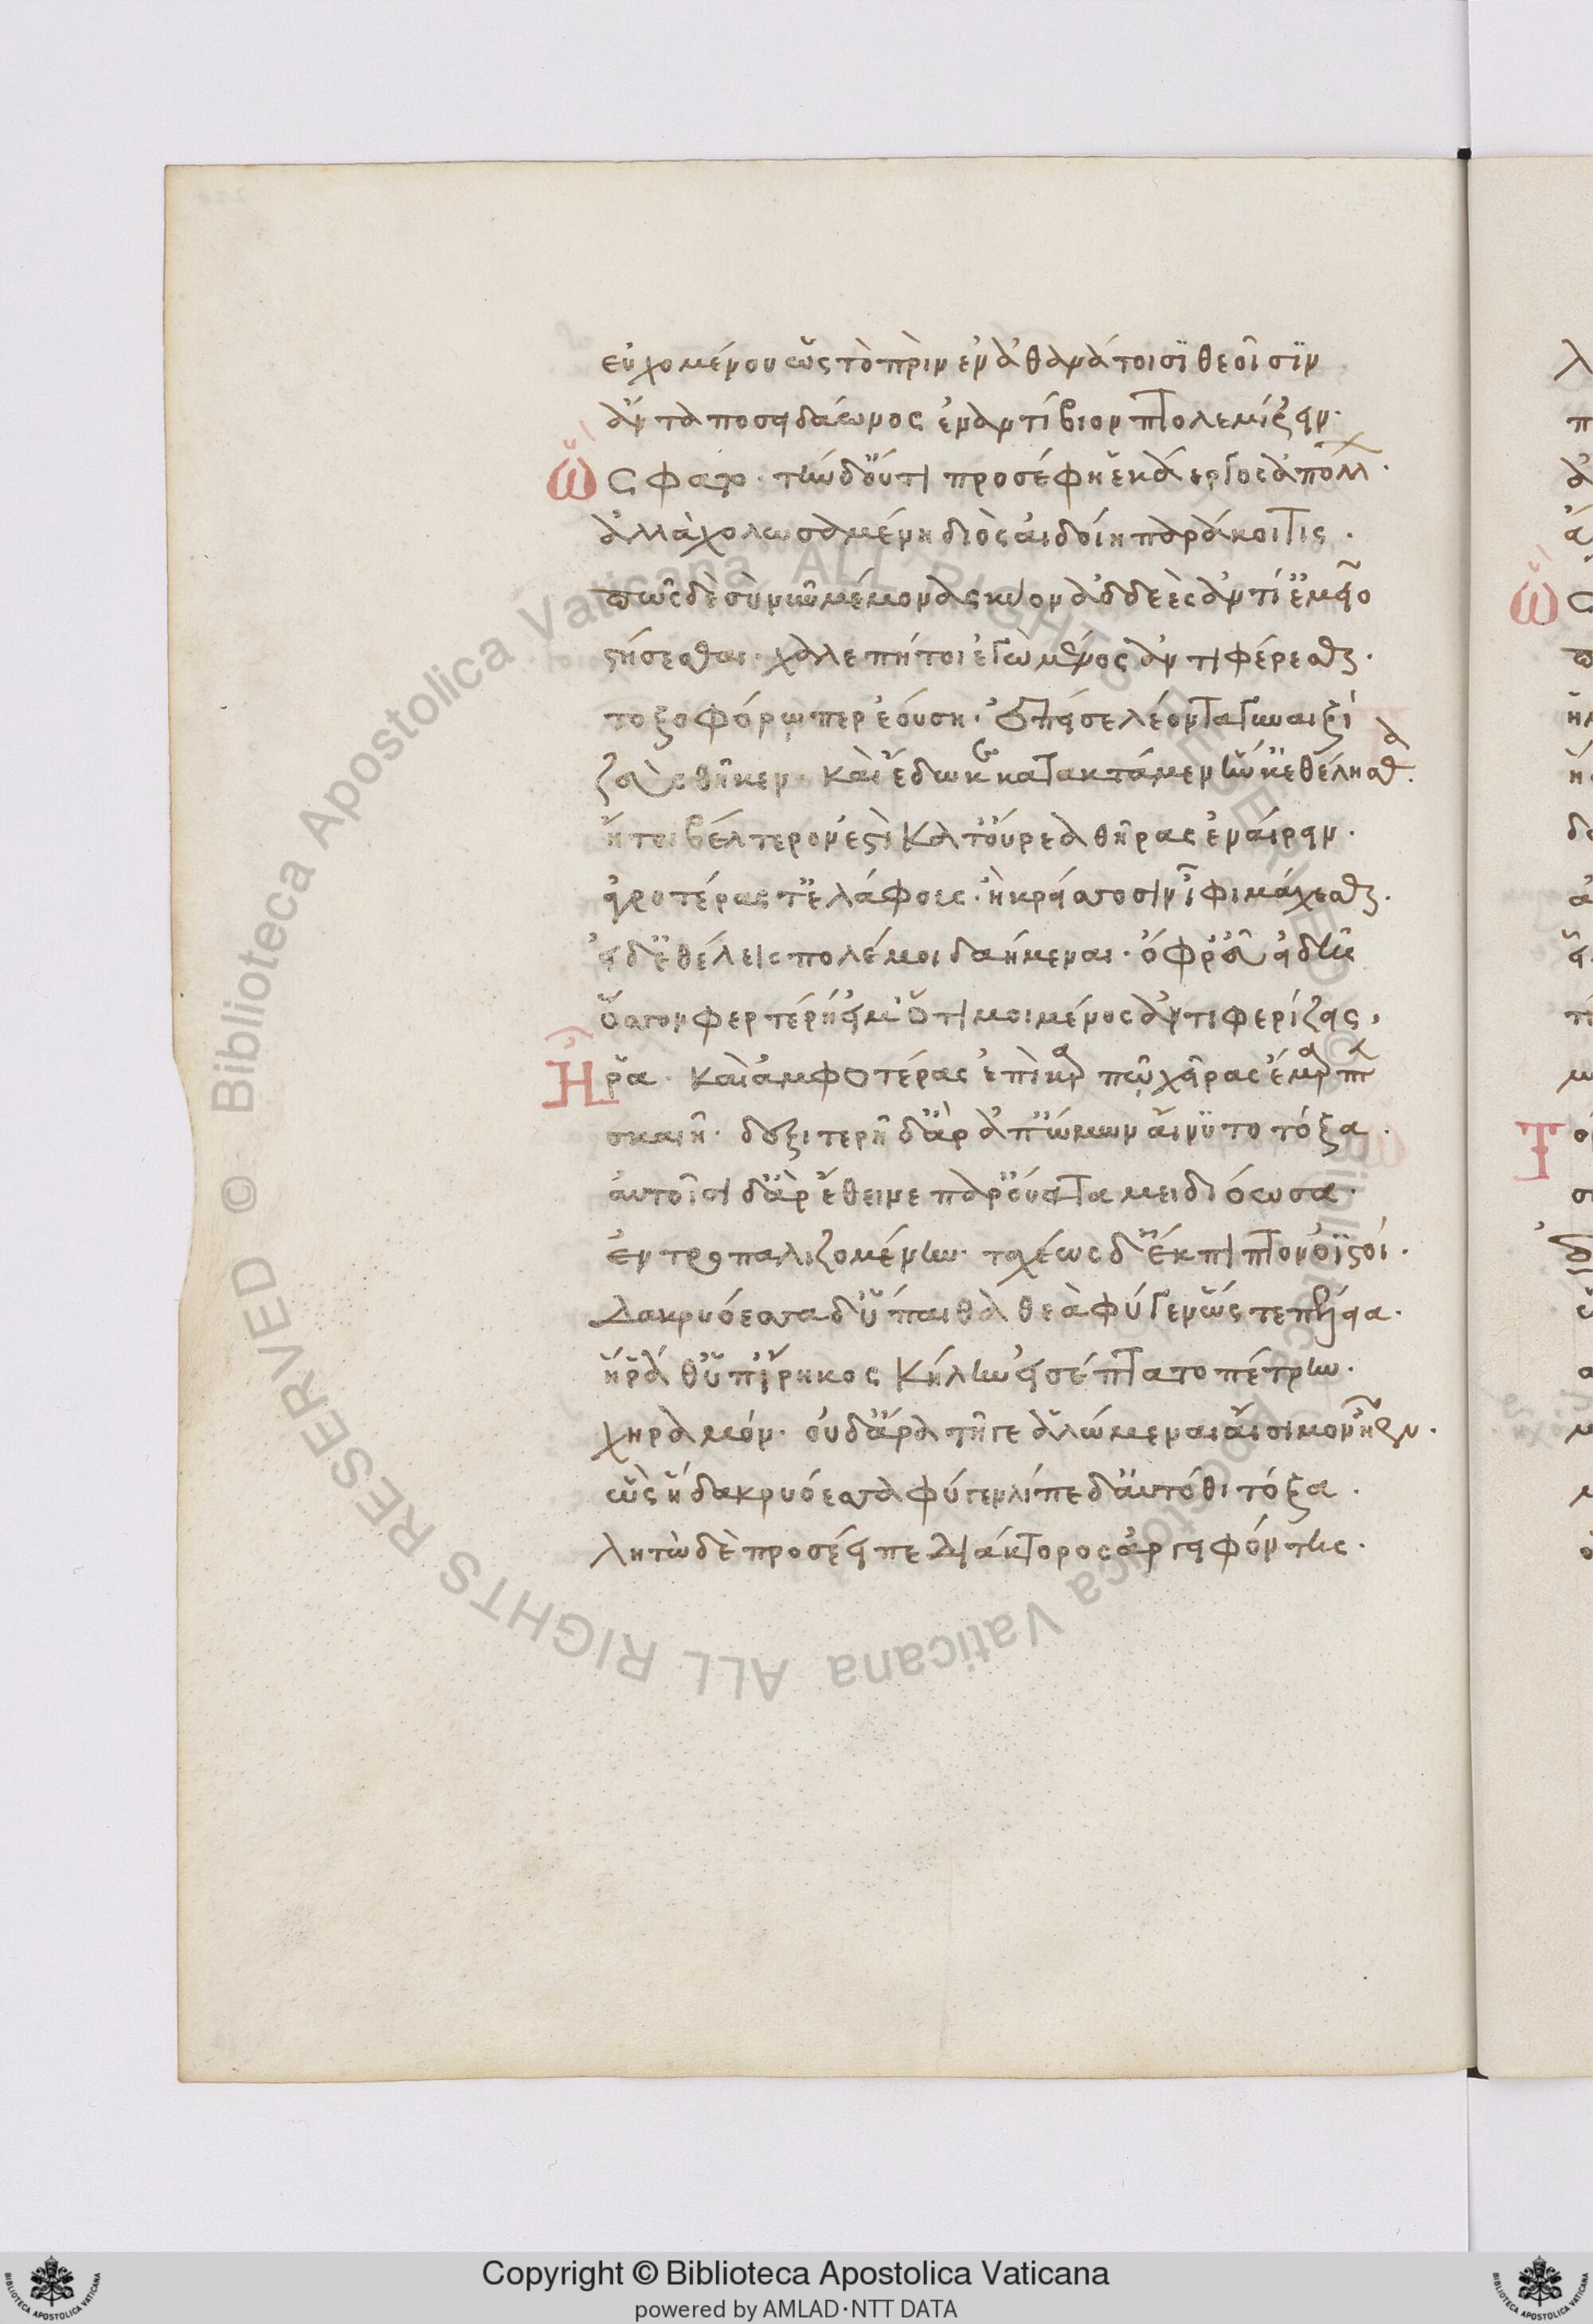 εὐχομένου ὡς τὸ πρὶν ἐν ἀθανάτοισι θεοῖσιν
ἄντα ποσειδάωνος ἐναντίβιον πτολεμίζειν·
Ὣς φάτο· τὴν δ' οὔτι προσέφη ἑκάεργος ἀπόλλ·
ἀλλὰ χολωσαμένη διὸς αἰδοίη παράκοιτις·
πῶς δὲ σὺ νῦν μέμονας κύον ἀδδεὲς ἀντί' ἐμεῖο
στήσεσθαι· χαλεπή τοι ἐγὼ μένος ἀντιφέρεσθαι·
τοξοφόρῳ περ ἐούσῃ· ἐπεί σε λέοντα γυναιξὶ
ζεὺς θῆκεν· καὶ ἔδωκε κατακτάμεν ἥν κ' ἐθέλησθα·
ἤτοι βέλτερόν ἐστι κατ' οὔρεα θῆρας ἐναίρειν·
ἀγροτέρας τ' ἐλάφους· ἢ κρείσσοσιν ἶφι μάχεσθαι·
εἰ δ' ἐθέλεις πολέμοι δαήμεναι· ὄφρ' εὖ εἰδῇς
ὅσσον φερτέρη εἴμ' ὅτι μοι μένος ἀντιφερίζεις,
Ἦ ῥα· καὶ ἀμφοτέρας ἐπὶ καρπῷ χεῖρας ἔμαρπτε
σκαιῇ· δεξιτερῇ δ' ἄρ' ἀπ' ὤμων αἴνυτο τόξα·
αὐτοῖσι δ' ἄρ' ἔθεινε παρ' οὔατα μειδιόωσα·
ἐντροπαλιζομένην· ταχέως δ' ἔκπιπτον ὀϊστοί·
δακρυόεσσα δ' ὕπαιθα θεὰ φύγεν ὥς τε πέλεια·
ἥ ῥά θ' ὑπ' ἴρηκος κήλην εἰσέπτατο πέτρην·
χηραμόν· οὐδ' ἄρα τῇ γε ἁλώμεναι αἴσιμον ἦεν·
ὣς ἡ δακρυόεσσα φύγεν λίπε δ' αὐτόθι τόξα·
λητὼ δὲ προσέειπε διάκτορος ἀργειφόντης·
Copyright © Biblioteca Apostolica Vaticana
powered by AMLAD·NTT DATA